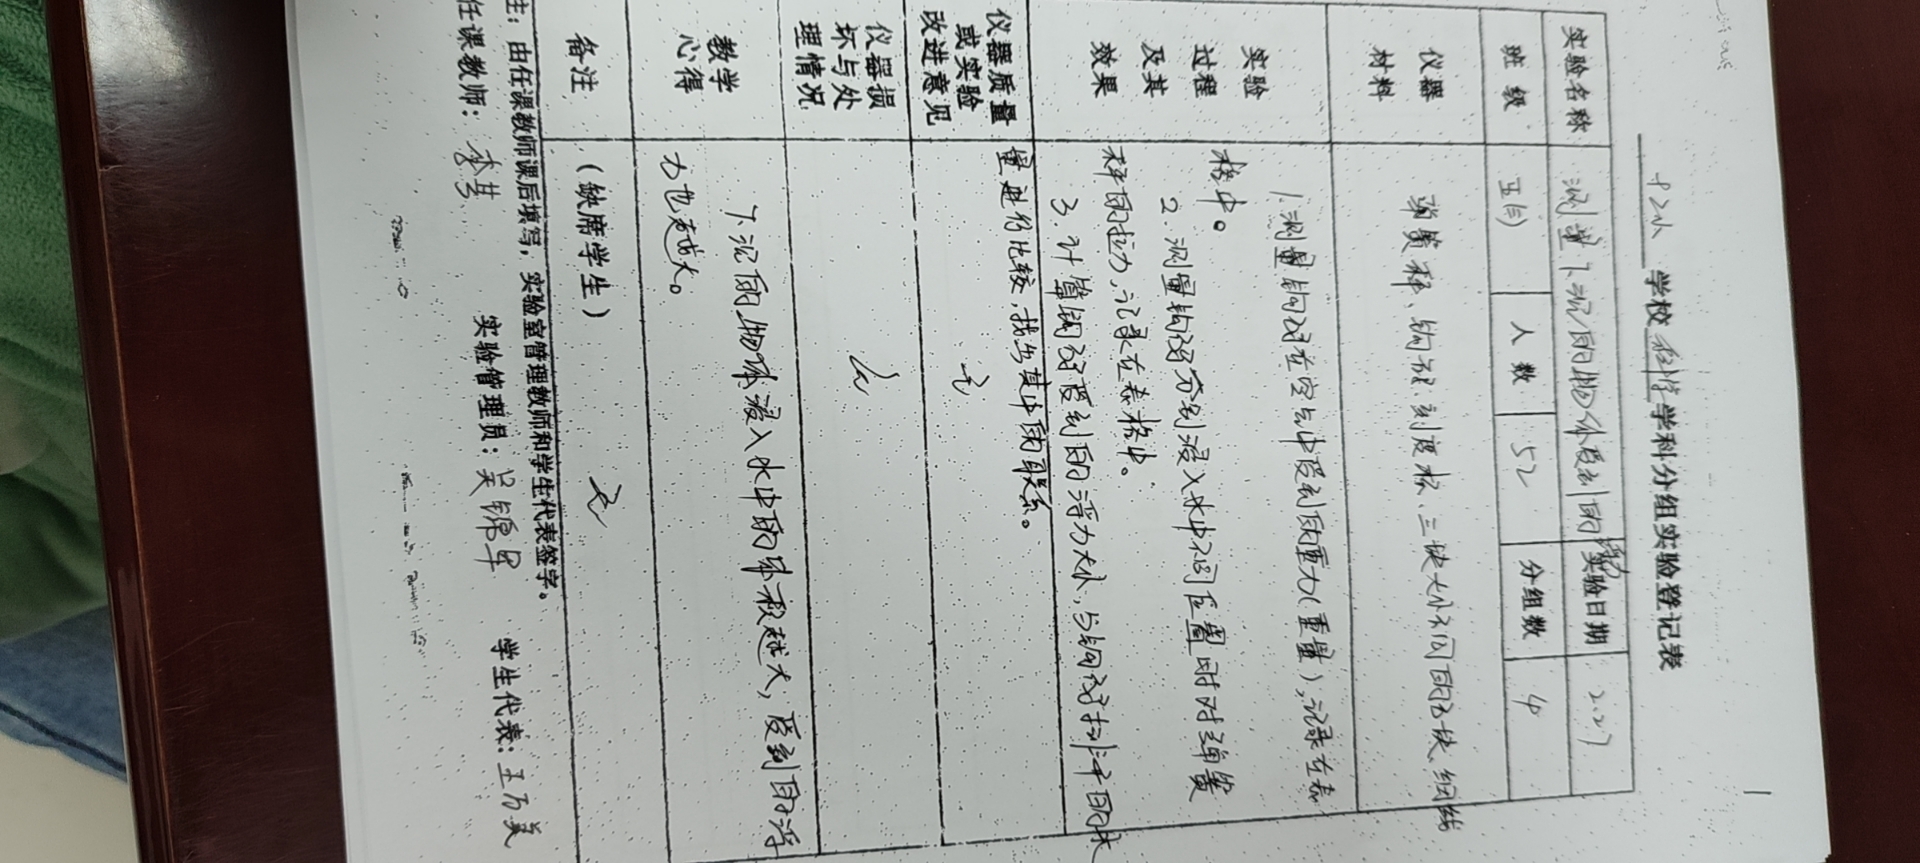 学校 科学 学科分组实验登记表
实验名称 测量下沉的物体受到的浮力 实验日期 2.27
班级 五(6) 人数 52 分组数 4
仪器材料 弹簧秤、钩码、刻度杯、三块大小不同的石块、细线
实验过程及其效果
1.测量钩码在空气中受到的重力(重量),记录在表
格中。
2.测量钩码分别浸入水中不同位置时对弹簧
秤的拉力,记录在表格中。
3.计算钩码受到的浮力大小,与钩码排开的水
量进行比较,找出其中的联系。
仪器质量或实验改进意见 无
仪器损坏与处理情况 无
教学心得
下沉的物体浸入水中的体积越大,受到的浮
力也越大。
备注 (缺席学生) 无
注:由任课教师课后填写,实验室管理教师和学生代表签字。
任课教师: 实验管理员:吴锦军 学生代表:王万美